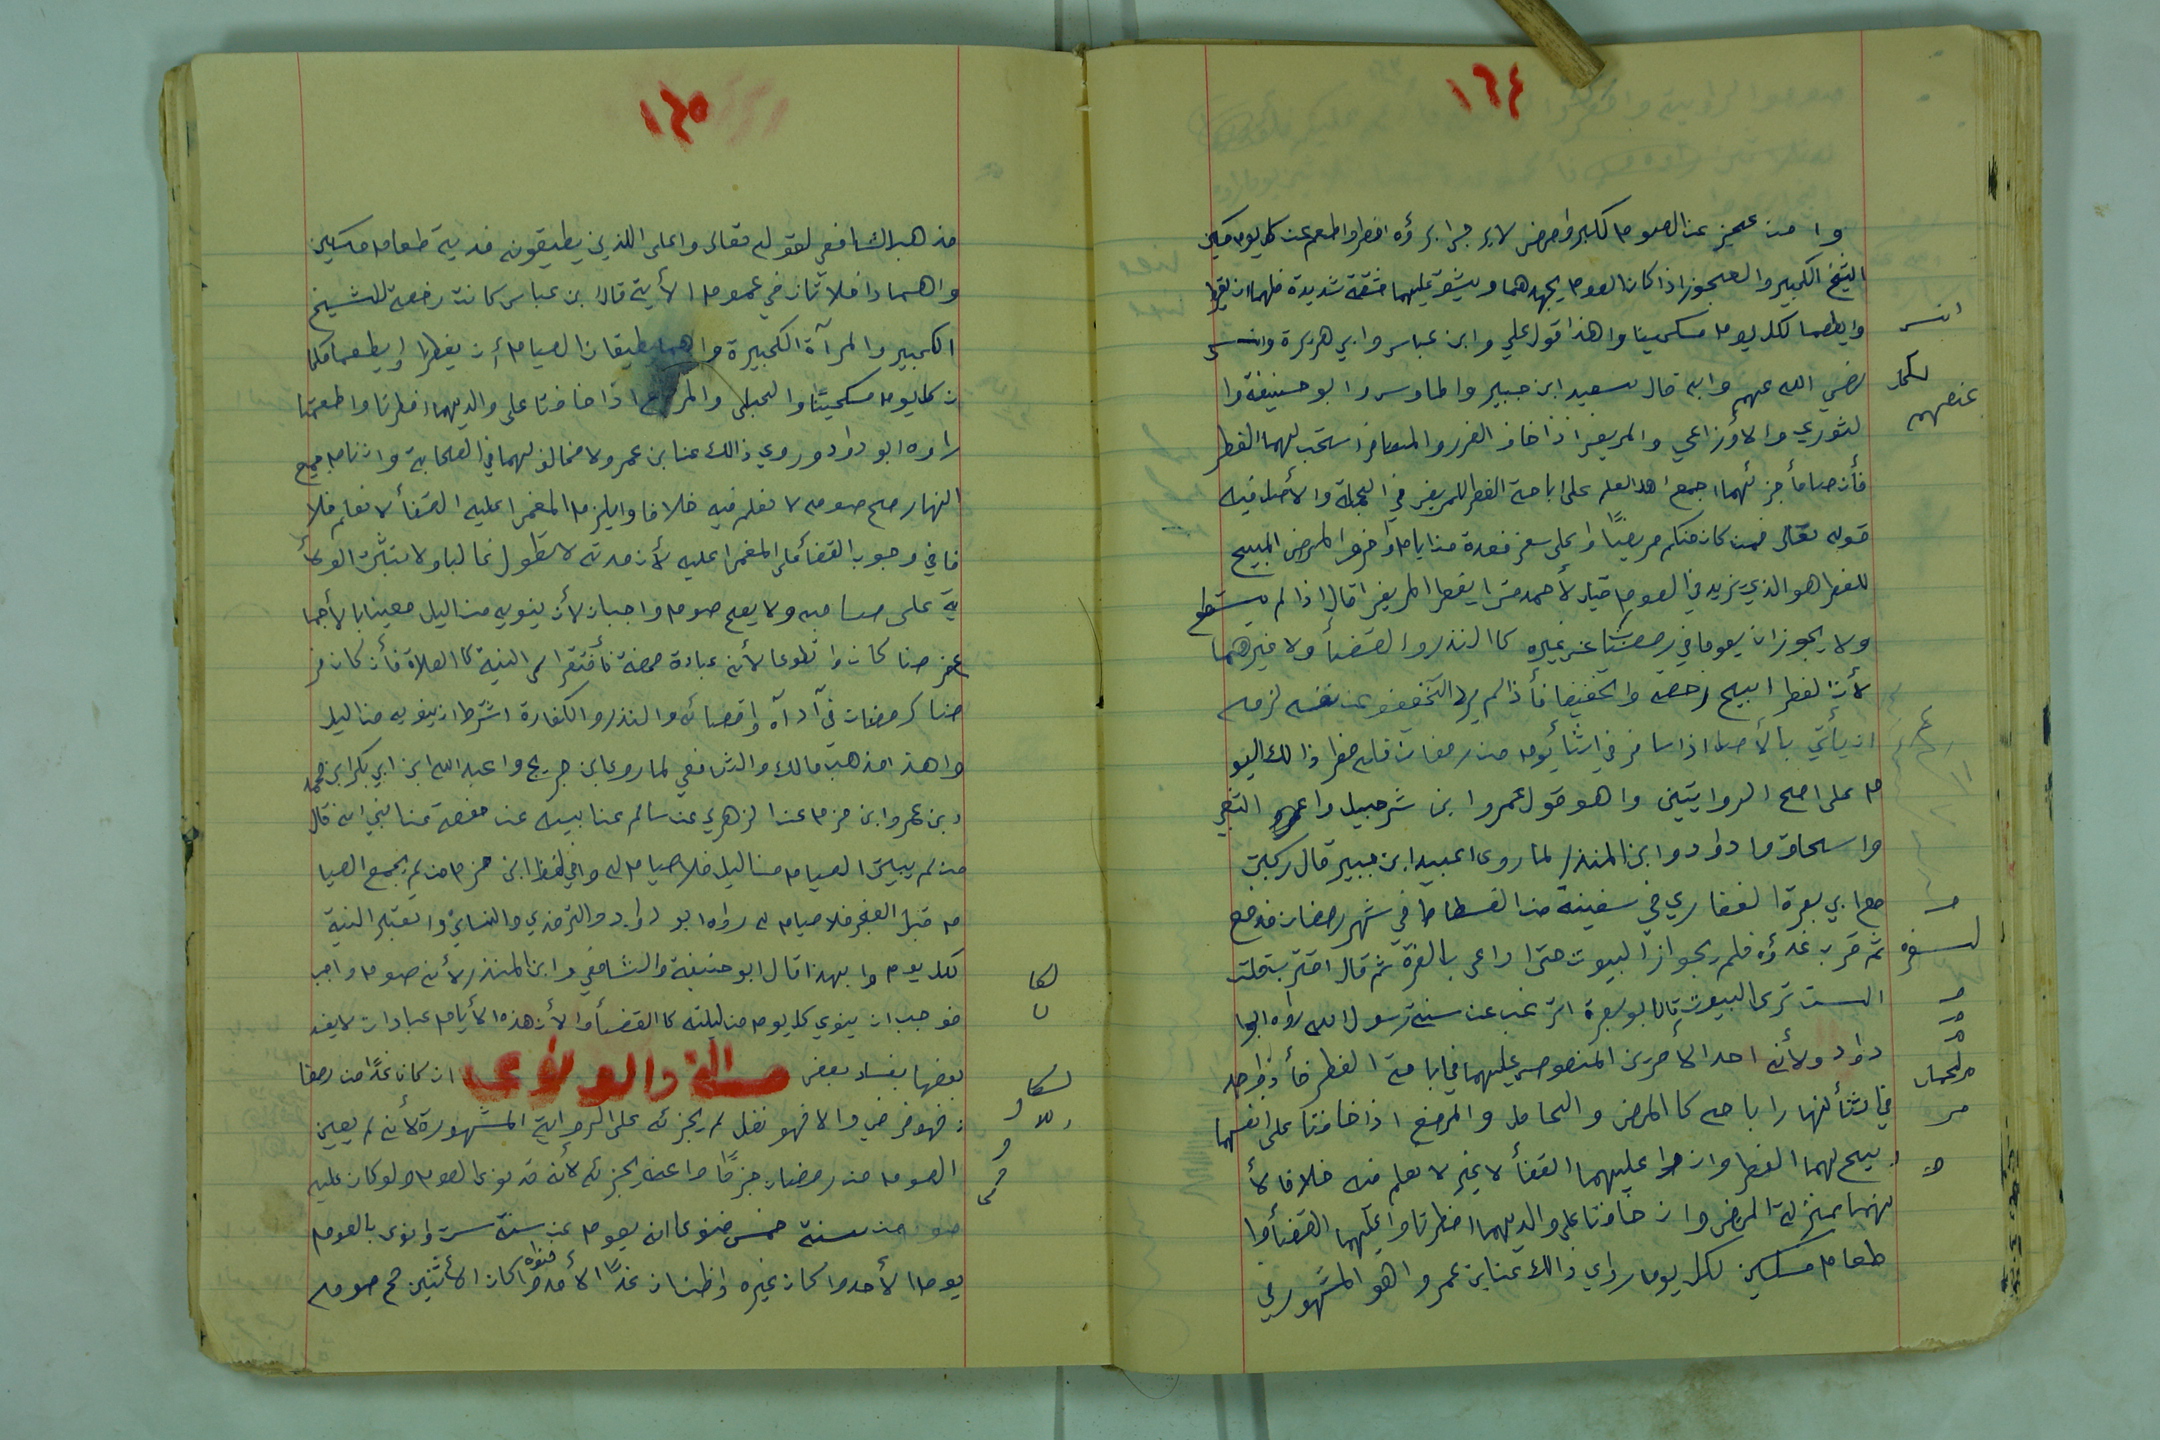 ١٦٤
وا من عجز عن الصوم لكبر وا مرض لا يرجى برؤه افطر واطعم عن كل يوم مسكين
الشيخ الكبير والعجوز اذا كان الصوم يجهدهما ويشق عليهما مشقة شديدة فلهما ان يفطرا
وايطعما لكل يوم مسكينا واهذا قول علي وابن عباس وابي هريرة وانس
رضي الله عنهم وابه قال سعيد ابن جبير والطاوس وابو حنيفة وا
لثوري والأوزاعي والمريض اذا خاف الضرر والمسافر استحب لهما الفطر
فأن صاما أجزئهما اجمع اهل العلم على اباحة الفطر للمريض في الجملة والأصل فيه
قوله تعالى فمن كان منكم مريضًا وا على سفر فعدة من ايام وآخر والمرض المبيح
للفطر هو الذي يزيد في الصوم قيل لأحمد متى ايفطر المريض قال اذا لم يستطع
ولا يجوز ان يصوما في رمضان عن غيره كا النذر والقضأ ولا غيرهما
لأن الفطر ابيح رخصة واتخفيفا فأذا لم يرد التخفيف عن نفسه لزمه
ان يأتي بالأصل اذا سافر في اثنأ يوم من رمضان فله فطر ذالك اليو
م على اصح الروايتين واهو قول عمروا ابن شرحبيل والشعبي
واسحاق وا داود وابن المنذر لما روى اعبيد ابن جبير قال ركبت
مع ابي بصرة الغفاري في سفينة من الفسطاط في شهر رمضان فدفع
ثم قرب غدؤه فلم يجواز البيوت حتى ادعى بالسفرة ثم قال اقترب قلت
الست ترى البيوت قال ابو بصرة اترغب عن سنة رسول الله رواه ابوا
داود ولأنه احد الأمرين المنصوص عليهما في اباحة الفطر فأذا وجد
في اثنأ لنهار اباحه كا المرض والحامل والمرضع اذا خافتا على انفسهما
ابيح لهما الفطر وان وا عليهما القضأ لا غير لا نعلم فيه خلافا لأ
نهما بمنزلة المرض وان خافتا على والديهما افطرتا واعليهما القضأ وا
طعام مسكين لكل يوم روي ذالك عن ابن عمر واهو المشهور في
انس
لكل
عنهم
السفرة
١٦٥
مذهب الشافعي لقوله تعالى واعلى اللذين يطيقونه فدية طعام مسكين
واهما داخلاتان في عموم الأية قال ابن عباس كانت رخصة للشيخ
الكبير والمرآة الكبيرة واهما يطيقان الصيام أن يفطرا وايطعما مكا
ن كل يوم مسكينًا والحبلى والمرضع اذا خافتا على والديهما افطرتا واطعمتا
راوه ابو داود وروي ذالك عن ابن عمر ولا مخالف لهما في الصحابة وا ان نام جميع
النهار صح صومه لا نعلم فيه خلافا وايلزم المغمرا عليه القضأ لا نعلم خلا
فا في وجوب القضأ على المغمرا عليه لأن مدته لا تطول غالبا ولا تثبت الولا
ية على صاحبه ولا يصح صوم واجب الا أن ينويه من اليل معينا بالأجما
ع فرضا كان وا تطوعا لأنه عبادة محضة فأفتقر الى النية كا الصلاة فأن كان فر
ضا كرمضان في أدآه وا قضائه والنذر والكفارة اشترط ان ينويه من اليل
واهذا مذهب مالك والشافعي لما روى ابن جريج وا عبدالله ابن ابي بكر ابن محمد
بن عمروا ابن حزم عن الزهري عن سالم عن ابيه عن حفصة عن النبي انه قال
من لم يبيت الصيام من اليل فلا صيام له وافي لفظ ابن حزم من لم يجمع الصيا
م قبل الفجر فلا صيام له رواه ابو داود والترمذي والنسائي وا تعتبر النية
لكل يوم وابهذا قال ابو حنيفة والشافعي وابن المنذر لأنه صوم واجب
فوجب ان ينوي كل يوم من ليلته كا القضأ ولأن هذه الأيام عبادات لا يفسد
بعضها بفساد بعض مسالة والو نوى ان كان غدًا من رمضا
ن فهو فرضي والا فهو نفل لم يجزئه على الرواية المشهورة لأنه لم يعين
الصوم من رمضان جزمًا وا عنه يجزئه لأنه قد نوى الصوم ولو كان عليه
صوم من سنة خمس فنوى انه يصوم عن سنة ست وا نوى بالصوم
يوم الأحد وا كان غيره وا ظنا ان غدًا الأحد فنواه وا كان الأثنين صح صومه
لكا
ن